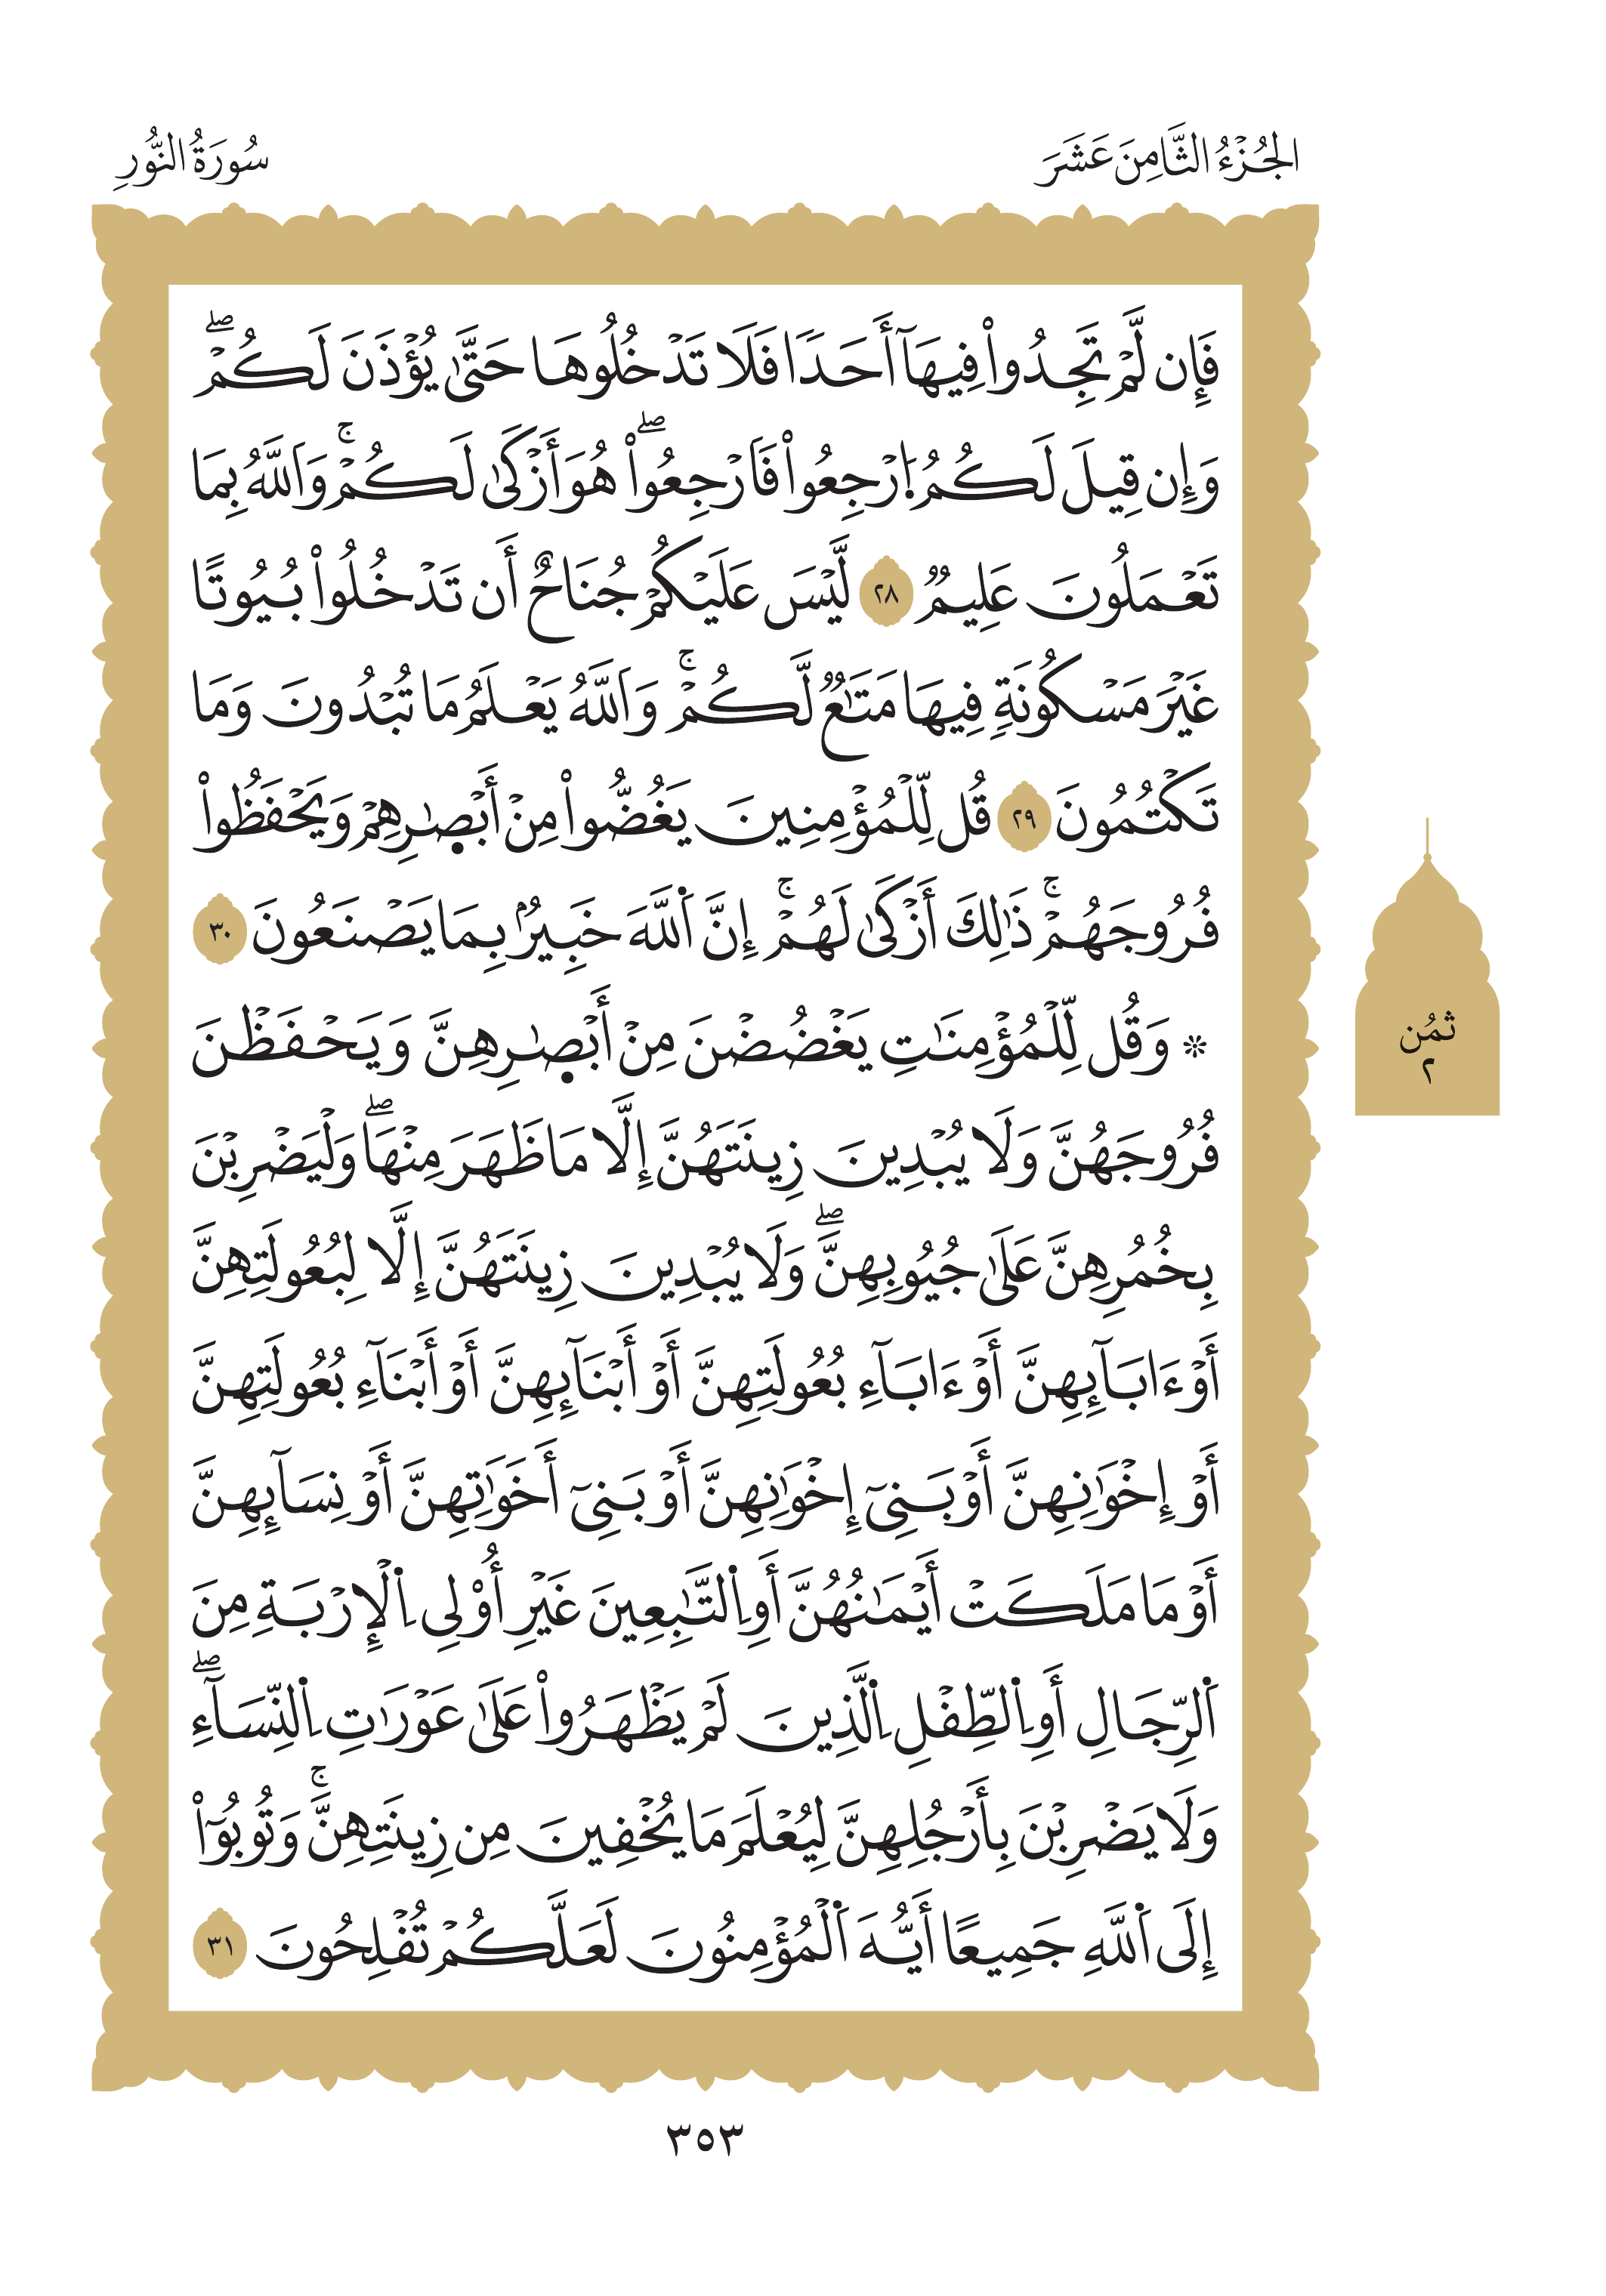 الجُزْءُ الثَّامِنَ عَشَرَ
سُورَةُ النُّورِ
فَإِن لَّمْ تَجِدُواْ فِيهَآ أَحَدًا فَلَا تَدْخُلُوهَا حَتَّىٰ يُؤْذَنَ لَكُمْۖ
وَإِن قِيلَ لَكُمُ اُ۪رْجِعُواْ فَارْجِعُواْۖ هُوَ أَزْكَىٰ لَكُمْۚ وَاللَّهُ بِمَا
تَعْمَلُونَ عَلِيمٌ ٢٨ لَّيْسَ عَلَيْكُمْ جُنَاحٌ أَن تَدْخُلُواْ بُيُوتًا
غَيْرَ مَسْكُونَةٍ فِيهَا مَتَٰعٌ لَّكُمْۚ وَاللَّهُ يَعْلَمُ مَا تُبْدُونَ وَمَا
تَكْتُمُونَ ٢٩ قُل لِّلْمُؤْمِنِينَ يَغُضُّواْ مِنْ أَبْصٰ۪رِهِمْ وَيَحْفَظُواْ
فُرُوجَهُمْۚ ذَٰلِكَ أَزْكَىٰ لَهُمْۚ إِنَّ اَ۬للَّهَ خَبِيرُۢ بِمَا يَصْنَعُونَ ٣٠
۞ وَقُل لِّلْمُؤْمِنَٰتِ يَغْضُضْنَ مِنْ أَبْصٰ۪رِهِنَّ وَيَحْفَظْنَ
فُرُوجَهُنَّ وَلَا يُبْدِينَ زِينَتَهُنَّ إِلَّا مَا ظَهَرَ مِنْهَاۖ وَلْيَضْرِبْنَ
بِخُمُرِهِنَّ عَلَىٰ جُيُوبِهِنَّۖ وَلَا يُبْدِينَ زِينَتَهُنَّ إِلَّا لِبُعُولَتِهِنَّ
أَوْ ءَابَآئِهِنَّ أَوْ ءَابَآءِ بُعُولَتِهِنَّ أَوْ أَبْنَآئِهِنَّ أَوْ أَبْنَآءِ بُعُولَتِهِنَّ
أَوْ إِخْوَٰنِهِنَّ أَوْ بَنِىٓ إِخْوَٰنِهِنَّ أَوْ بَنِىٓ أَخَوَٰتِهِنَّ أَوْ نِسَآئِهِنَّ
أَوْ مَا مَلَكَتْ أَيْمَٰنُهُنَّ أَوِ اِ۬لتَّٰبِعِينَ غَيْرِ أُوْلِى اِ۬لْإِرْبَةِ مِنَ
اَ۬لرِّجَالِ أَوِ اِ۬لطِّفْلِ اِ۬لَّذِينَ لَمْ يَظْهَرُواْ عَلَىٰ عَوْرَٰتِ اِ۬لنِّسَآءِۖ
وَلَا يَضْرِبْنَ بِأَرْجُلِهِنَّ لِيُعْلَمَ مَا يُخْفِينَ مِن زِينَتِهِنَّۚ وَتُوبُوٓاْ
إِلَى اَ۬للَّهِ جَمِيعًا أَيُّهَ اَ۬لْمُؤْمِنُونَ لَعَلَّكُمْ تُفْلِحُونَ ٣١
ثُمُن
٢
٣٥٣